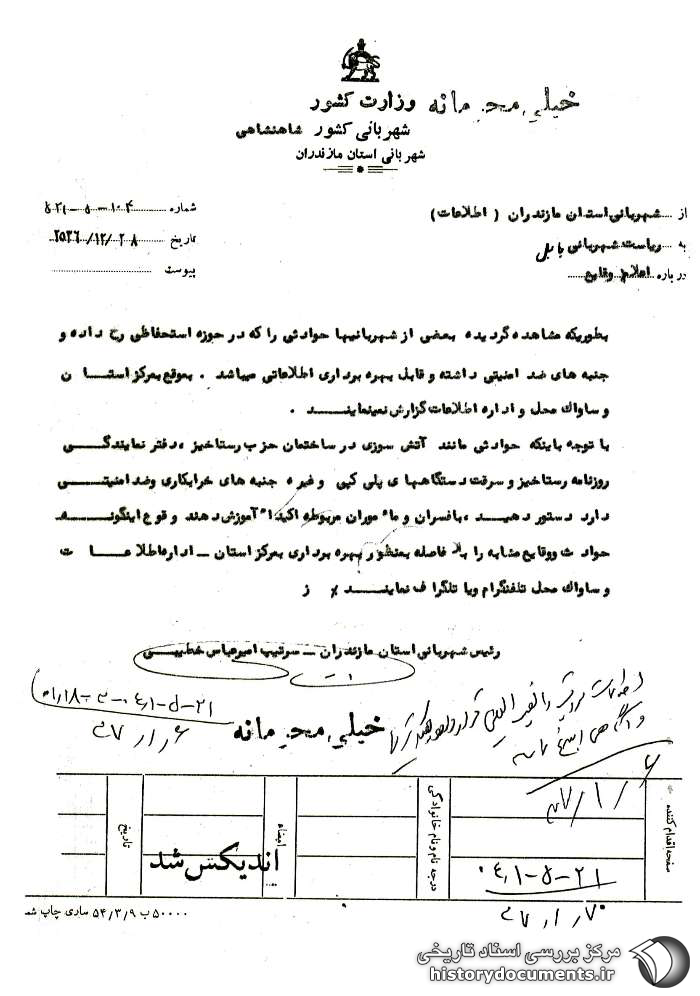 خیلی محرمانه
وزارت کشور
شهربانی کشور شاهنشاهی
شهربانی استان مازندران
از شهربانی استان مازندران ( اطلاعات)
به ریاست شهربانی بابل
درباره اعلام وقایع
شماره ۱۰۴-۵-۵۲۱
تاریخ ۲۵۳۶/۱۲/۲۸
پیوست
بطوریکه مشاهده گردیده بعضی از شهربانیها حوادثی را که در حوزه استحفاظی رخ داده و
جنبه های ضد امنیتی داشته و قابل بهره برداری اطلاعاتی میباشد . بموقع بمرکز استان
و ساواك محل و اداره اطلاعات گزارش نمینمایند .
با توجه باینکه حوادثی مانند آتش سوزی در ساختمان حزب رستاخیز ، دفتر نمایندگی
روزنامه رستاخیز و سرقت دستگاههای پلی کپی و غیره جنبه های خرابکاری وضد امنیتی
دارد دستور دهید ، بافسران و مأموران مربوطه اکیداً آموزش دهند و قوع اینگونه
حوادث ووقایع مشابه را بلا فاصله بمنظور بهره برداری بمرکز استان - اداره اطلاعات
و ساواك محل تلفنگرام ویا تلگراف نمایند ٪ ز
رئیس شهربانی استان مازندران - سرتیپ امیرعباس خطیبی
خیلی محرمانه
۲۱-۵-۰۴۱
صفحه اقدام کننده
درجه نام و نام خانوادگی
امضاء
تاریخ
اندیکس شد
۲۱-۵-۰۴۱
۵۰۰۰۰ ب ۵۴/۳/۹ ساری چاپ شد
مرکز بررسی اسناد تاریخی
historydocuments.ir